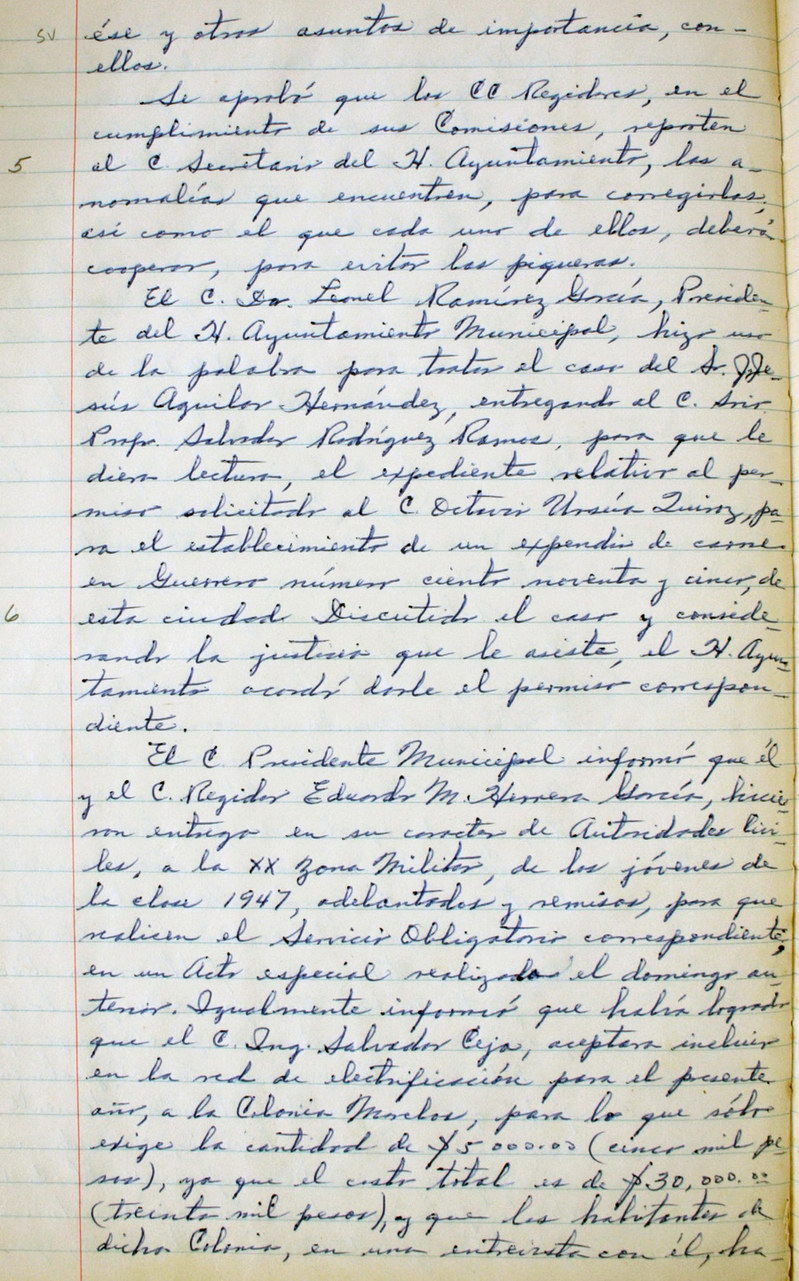 SV
ése y otros asuntos de importancia, con-
ellos.
Se aprobó que los CC Regidores, en el
cumplimiento de sus Comisiones, reporten
5
al C. Secretario del H. Ayuntamiento, las a-
nomalías que encuentren, para corregirlas,
así como el que cada uno de ellos, deberá
cooperar, para evitar las piqueras.
El C. Dr. Leonel Ramírez García, Presiden-
te del H. Ayuntamiento Municipal, hizo uso
de la palabra para tratar el caso del Sr. J. Je-
sús Aguilar Hernández, entregando al C. Srio.
Profr. Salvador Rodríguez Ramos, para que le
diera lectura, el expediente relativo al per-
miso solicitado al C. Octavio Ursúa Quiroz, pa-
ra el establecimiento de un expendio de carne
en Guerrero número ciento noventa y cinco, de
6
esta ciudad Discutido el caso y conside-
rando la justicia que le asiste, el H. Ayun-
tamiento acordó darle el permiso correspon-
diente.
El C Presidente Municipal informó que él
y el C. Regidor Eduardo M. Herrera García, hicie-
ron entrega en su caracter de Autoridades Civi-
les, a la XX Zona Militar, de los jóvenes de
la clase 1947, adelantados y remisos, para que
realicen el Servicio Obligatorio correspondiente,
en un Acto especial realizado el domingo an-
terior. Igualmente informó que había logrado
que el C. Ing. Salvador Ceja, aceptara incluir
en la red de electrificación para el presente
año, a la Colonia Morelos, para lo que sólo
exige la cantidad de $5 000.00 (cinco mil pe-
sos), ya que el costo total es de $30,000.00
(treinta mil pesos), y que los habitantes de
dicha Colonia, en una entrevista con él, ha-